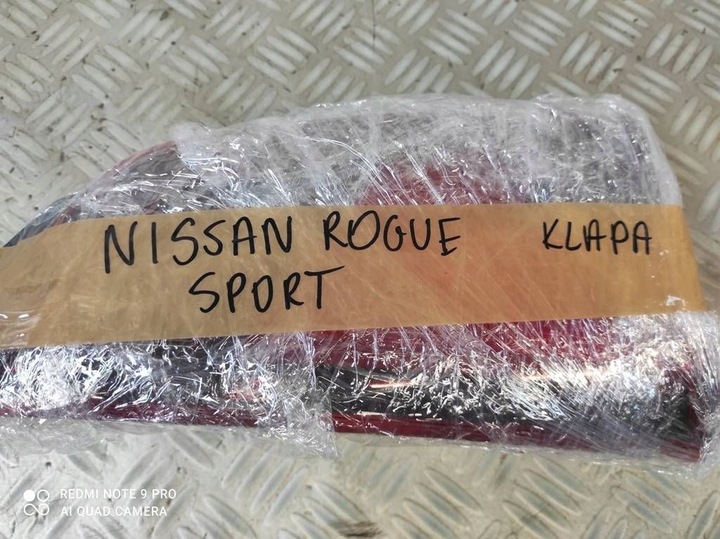 NISSAN ROGUE KLAPA
SPORT
REDMI NOTE 9 PRO
AI QUAD CAMERA